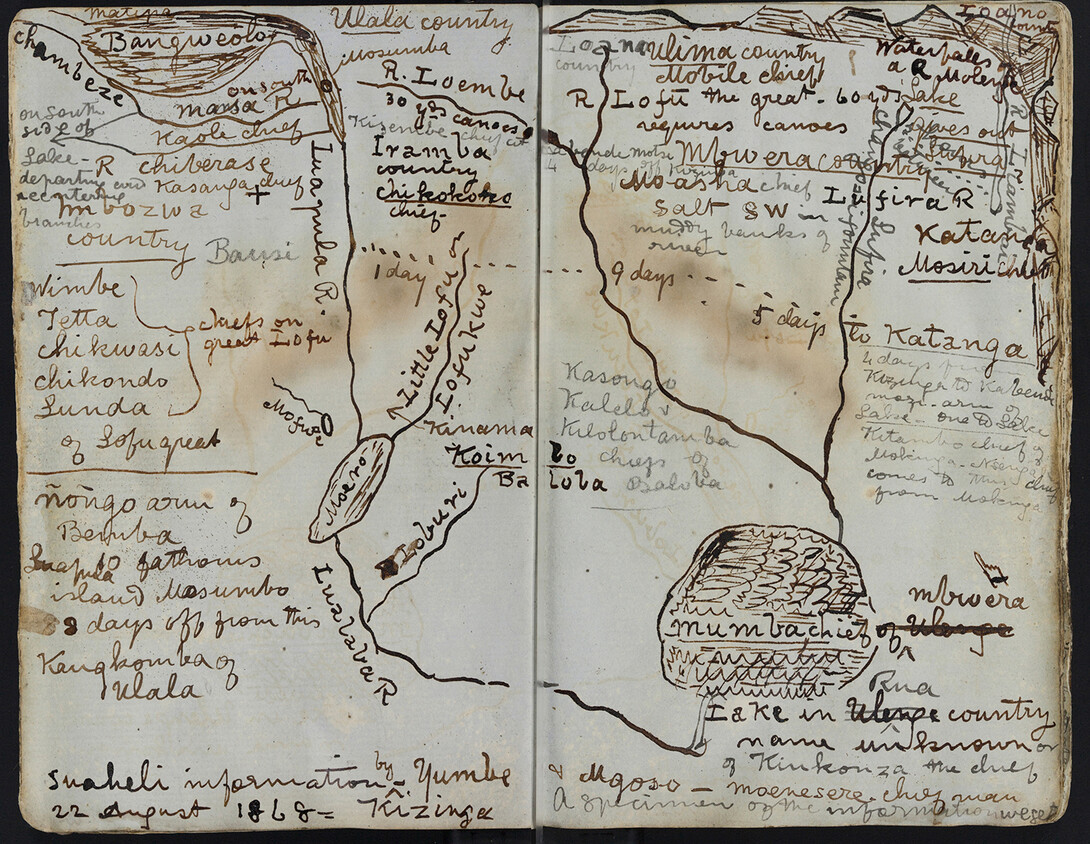 matipa
Bangweolo
chambeze
Ulala country
Mosumba
R. Loembe
30 yds canoes
on South
mansa R
on South
side of
Lake -
departing and
reentering
branches
Kaole chief
R chiberase
Kasanga chief
+
mbozwa
country
Bausi
Luapula R.
Iramba
country
chikokoko
chief-
1 day
Wimbe
Tetta
chikwasi
chikondo
Lunda
chiefs on
great Lofu
of Lofu great
Mofwe
Little Lofu or
Lofukwe
Kinama
Moero
Koimbo
Baloba
Loburi
Lualaba R
ñongo arm of
Bemba
Luapula 10 fathoms
island Mosumbo
8 days off from this
Kangkomba of
Ulala
Suaheli information by Yumbe
22 August 1868 = Kizinga
Loano
ulima country
Mobile chief
country
R Lofu the great - 60 yds
requires canoes
Waterfalls
Lake
gives out
Mbwera country
Moasha chief
Lufira R
Salt SW - in
muddy banks of
river
Lufira
Katanga
Mosiri chief
9 days
5 days to Katanga
4 days from
Kizinga to Kabende
mozi - arm of
Lake - one to Lake
Kitambo chief of
Mokinga
comes to this
from Mokinga
Kasongo
Kalelo
Kilolontamba
chiefs of
Baloba
mumba chief of Ulenge
mbwera
Rua
Lake in Ulenge country
name unknown or
of Kinkonza the chief
& Mgoso - moenesere chief man
A specimen of the information we get